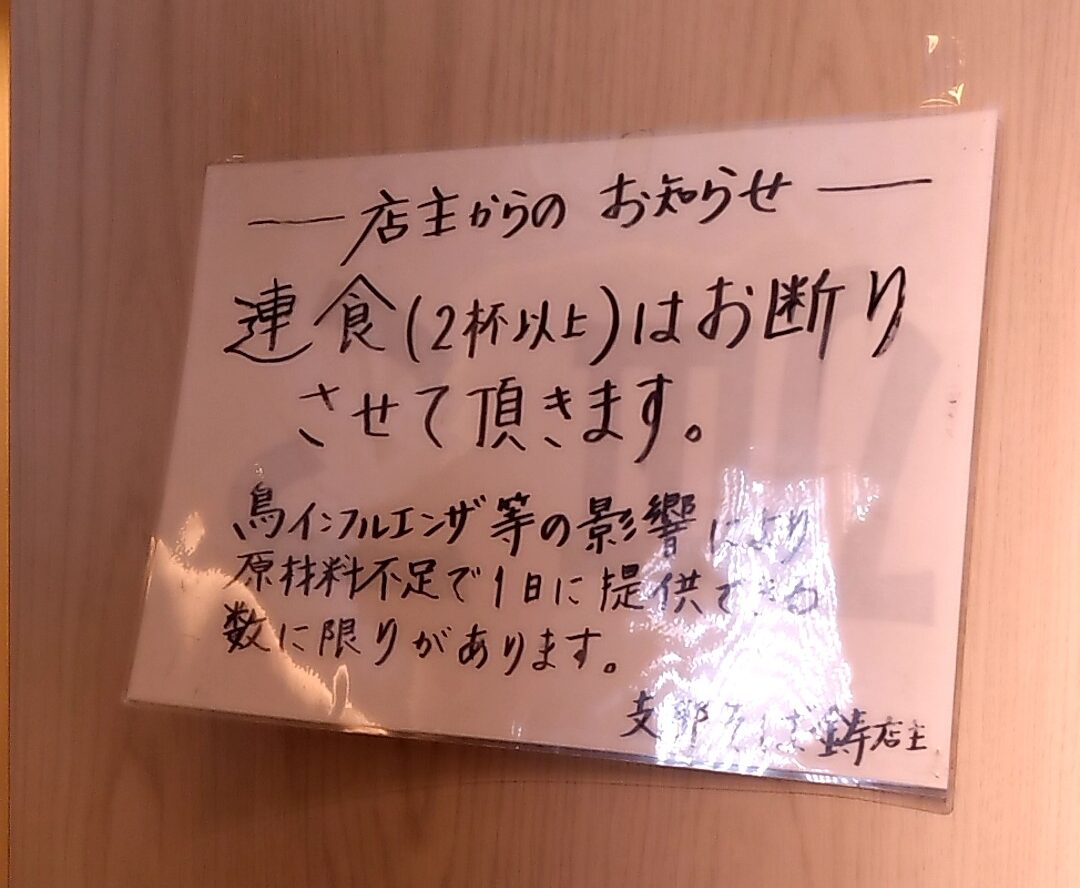 店主からの お知らせ
連食(2杯以上)はお断り
させて頂きます。
鳥インフルエンザ等の影響により
原材料不足で1日に提供できる
数に限りがあります。
支那そば 鋳店主